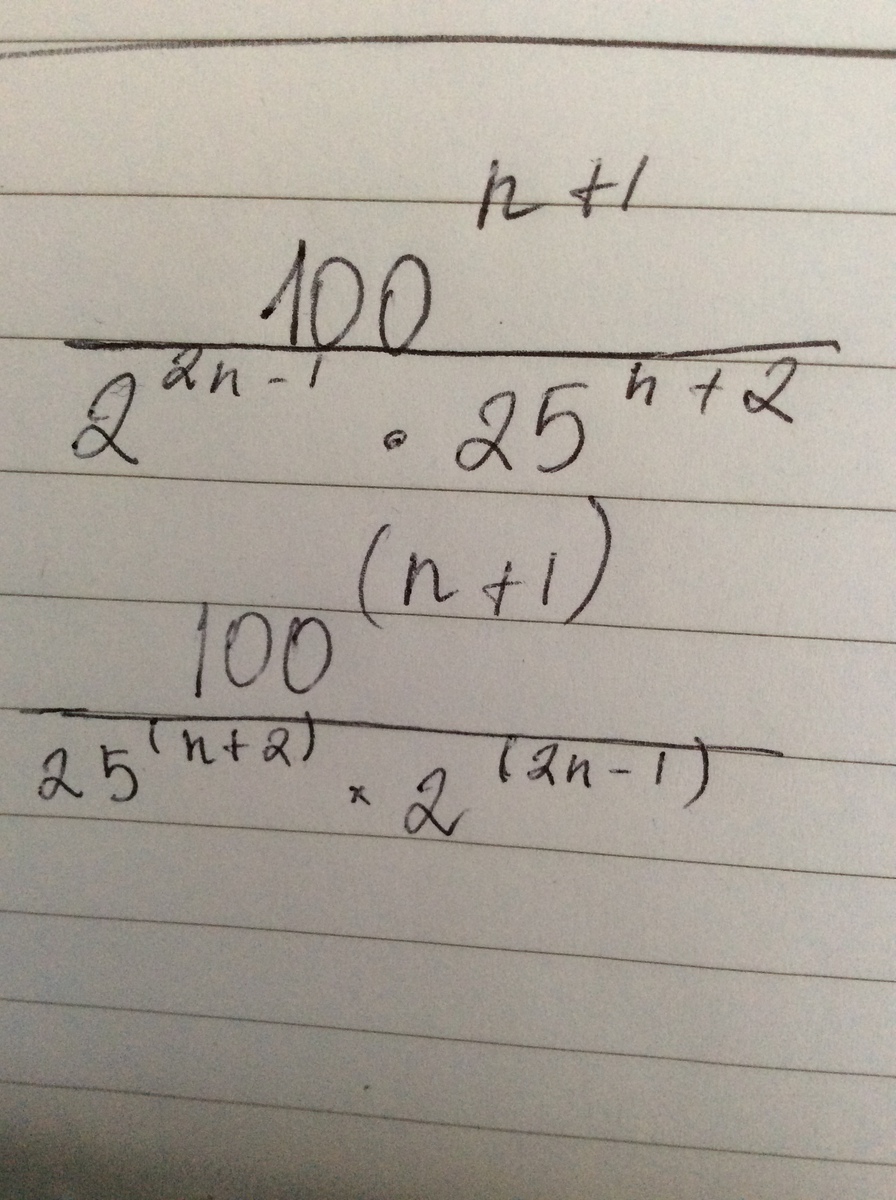 n+1
100
2^{2n-1} · 25^{n+2}
100^{(n+1)}
25^{(n+2)} × 2^{(2n-1)}